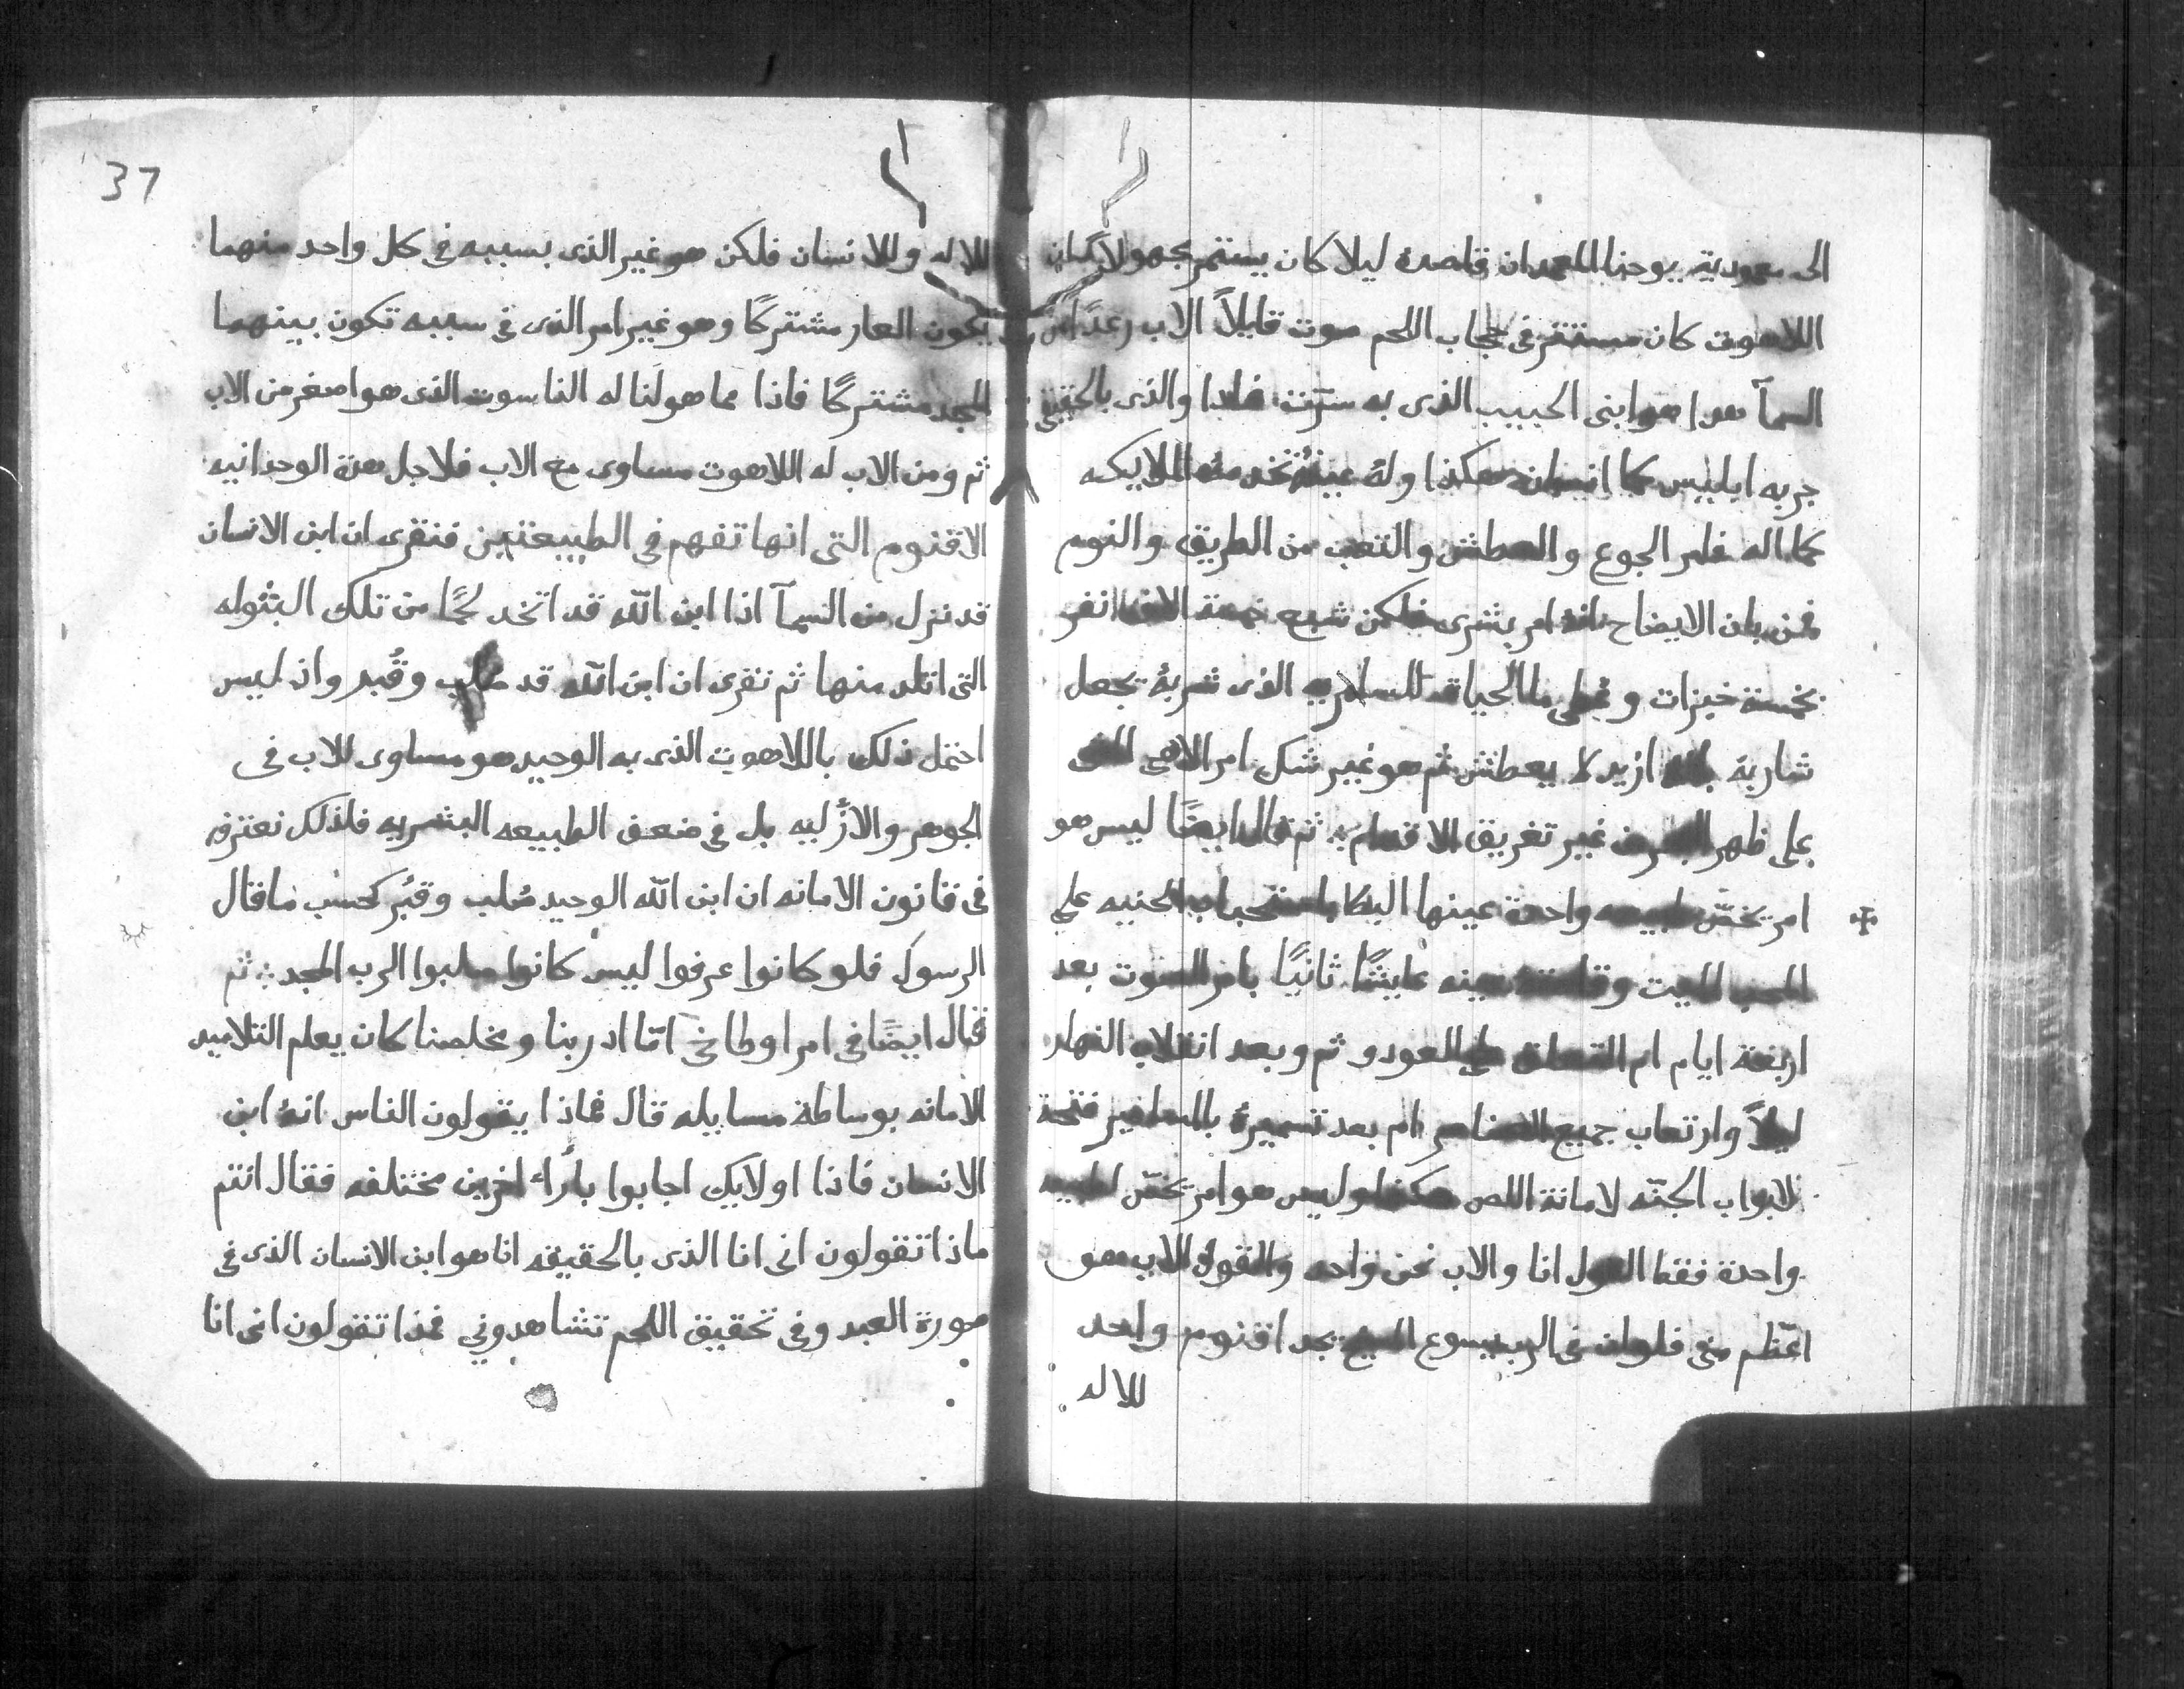 الى معمودية يوحنا المعمدان قاصده ليلا كان يستتر مجهولا كان
اللاهوت كان مستتر فى حجاب اللحم صوت قايلاً الاب رعدًا من
السمآ هدا هو ابنى الحبيب الذى به سرّت فاذا والذى بالحقيقي
جربه ابليس كما انسان هكذا وله عينهُ تخدمه الملايكه
كما اله فامر الجوع والعطش والتعب من الطريق والنوم
فمن بان الايضاح انه امر بشرى فلكن شبع خمسة الاف انفر
بخمسة خبزات وعطى ما الحياة للسامريه الذى شربهُ تجعل
شاربهُ بانه ازيد لا يعطش ثم هو غير شك امر الاهى المشى
على ظهر البحر من غير تغريق الاقدام ثم قال ايضًا ليس هو
امر يخصّ طبيعه واحدة عينها البكا باستحباب الحنيه على
المحب الميت وقامته عينه عايشًا ثانيًا بامر الصوت بعد
اربعة ايام ام التعلق على العودو ثم وبعد انقلاب النهار
ليلاً وارتعاب جميع العناصر ام بعد تسميرهُ بالمسامير فتحة
لابواب الجنّه لامانة اللص هكذا وليس هو امر يخصّ لطبيعه
واحدة فقط القول انا والاب نحن واحد والقول الاب هو
اعظم منى فلو ان فى الرب يسوع المسيح يجد اقنوم واحد
للاله
37
للاله وللانسان فلكن هو غير الذى بسببه فى كل واحد منهما
يكون العار مشتركًا وهو غير امر الذى فى سببه تكون بينهما
المجد مشتركًا فاذا مما هو لَنا له الناسوت الذى هو اصغر من الاب
ثم ومن الاب له اللاهوت مساوى مع الاب فلاجل هدة الوحدانيه
الاقنوم التى انها تفهم فى الطبيعتين فنقرى ان ابن الانسان
قد نزل من السمآ اذا ابن الله قد اتخد لحمًا من تلك البتوله
التى اتلد منها ثم نقرى ان ابن الله قد صُلب وقُبر واذ ليس
احتمل ذلك باللاهوت الذى به الوحيد هو مساوى للاب فى
الجوهر والازليه بل فى ضعف الطبيعه البشريه فلذلك نعترفه
فى قانون الامانه ان ابن الله الوحيد صُلب وقبُر كحسب ما قال
الرسول فلو كانوا عرفوا ليس كانوا صلبوا الرب المجد ثم
فقال ايضًا فى امر اوطاخى امّا اد ربنا ومخلصنا كان يعلم التلاميد
الامانه بوساطة مسايله قال فماذا يقولون الناس انهُ ابن
الانسان فاذا اولايك اجابوا بأراء اخرين مختلفه فقال انتم
ماذا تقولون انى انا الذى بالحقيقه انا هو ابن الانسان الذى فى
صورة العبد وفى تحقيق اللحم تشاهدونى فمذا تقولون انى انا